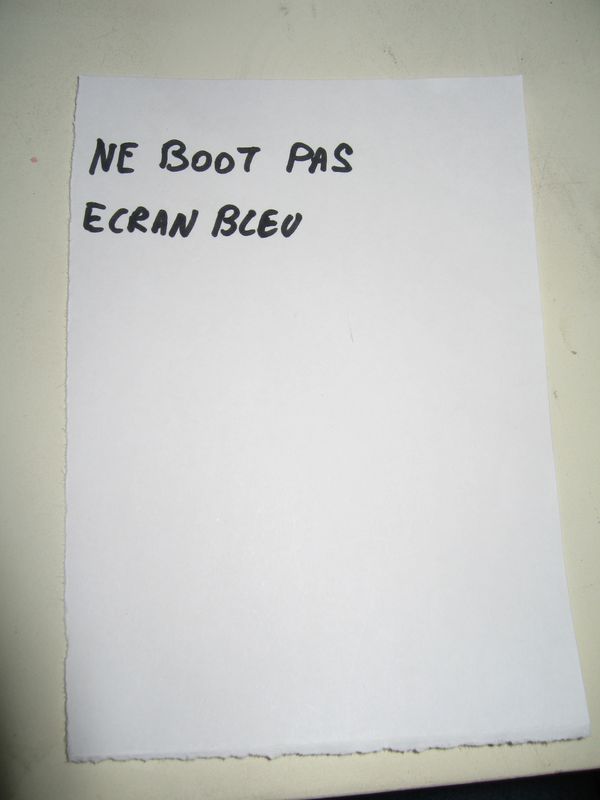 NE BOOT PAS
ECRAN BLEU